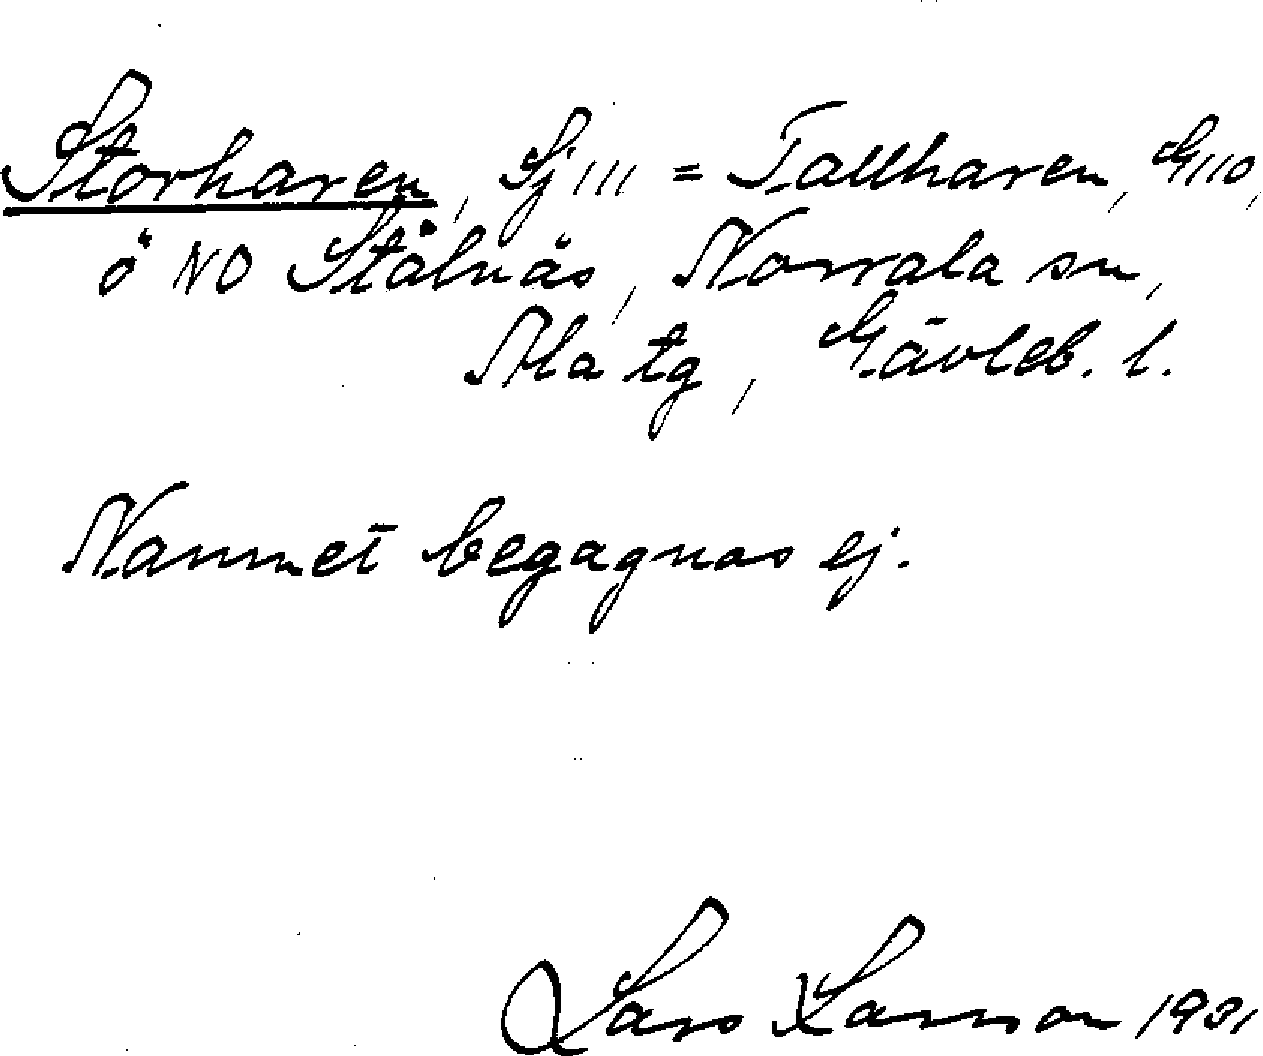 Storharen, Sj 111 = Tallharen, G 110,
ö NO Stålnäs, Norrala sn,
Ala tg, Gävleb. l.
Namnet begagnas ej.
Lars Larsson 1931